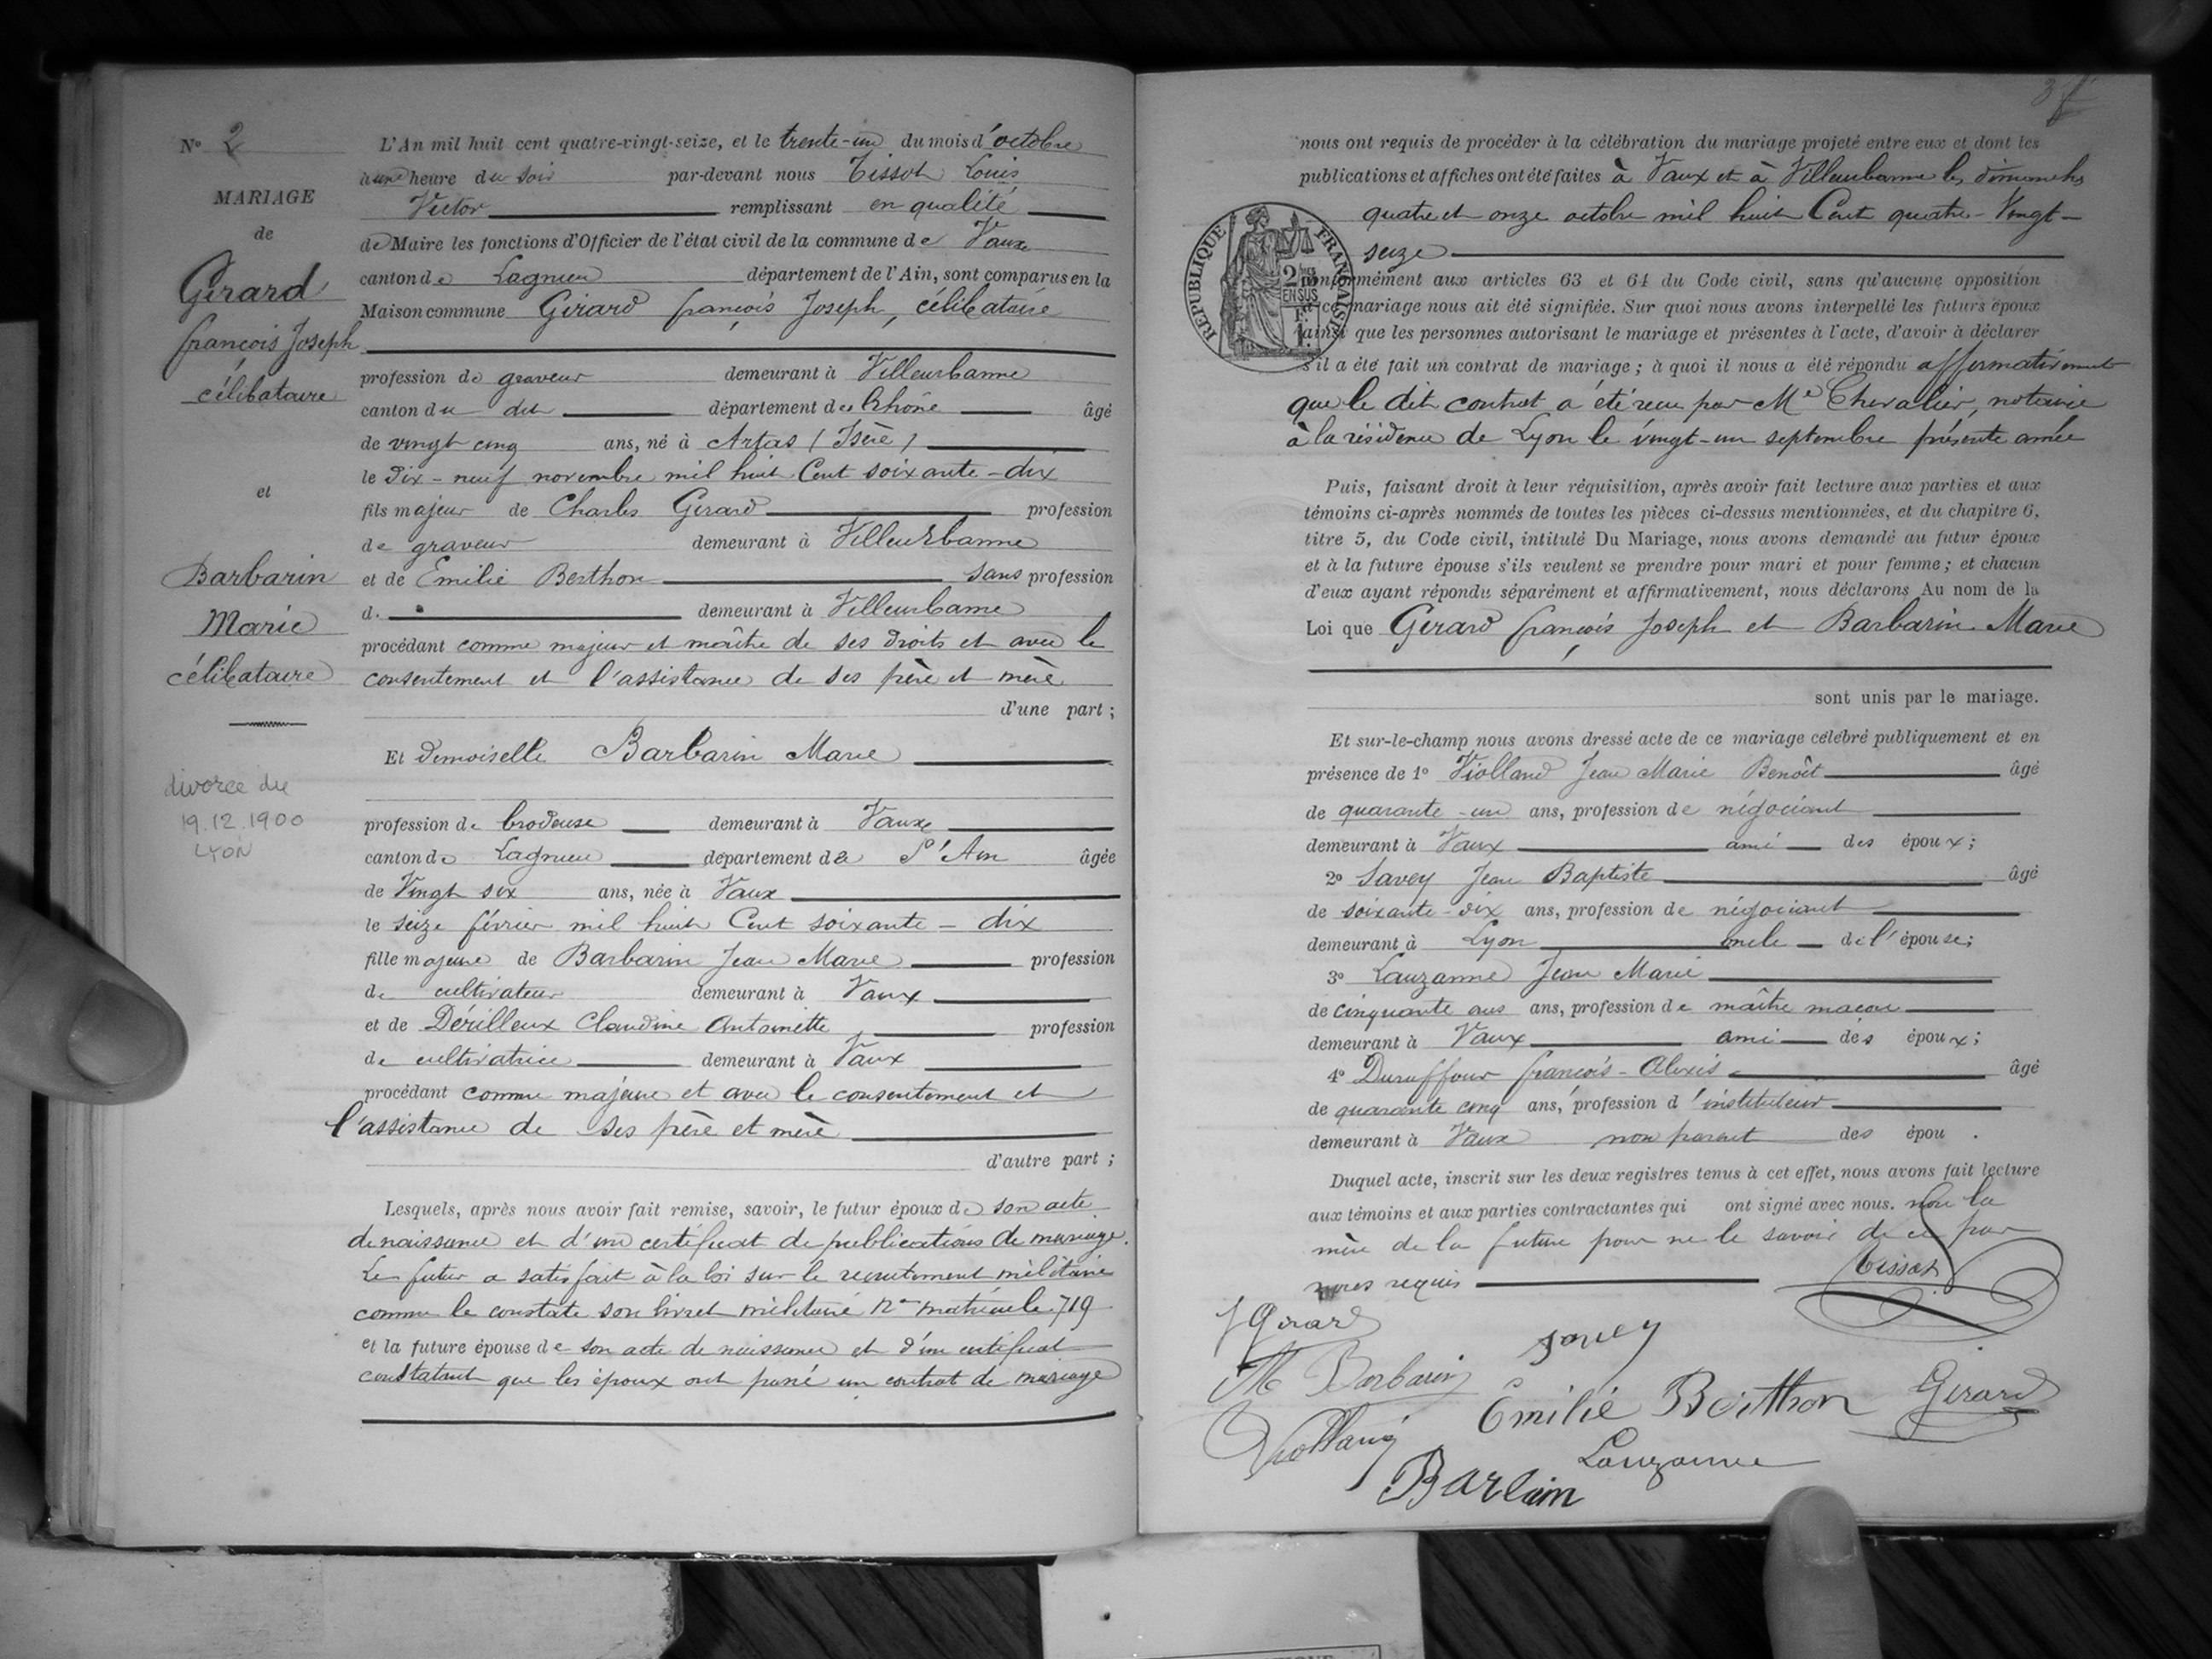 N° 2
MARIAGE
de
Girard
françois Joseph
célibataire
et
Barbarin
Marie
célibataire
divorce du
19.12.1900
LYON
L'An mil huit cent quatre-vingt-seize, et le trente-un du mois d'octobre
à une heure du soir par-devant nous Tissot Louis
Victor remplissant en qualité
de Maire les fonctions d'Officier de l'état civil de la commune de Vaux
canton de Lagnieu département de l'Ain, sont comparus en la
Maison commune Girard françois Joseph, célibataire
profession de graveur demeurant à Villeurbanne
canton du dit département du Rhône âgé
de vingt cinq ans, né à Artas (Isère)
le dix-neuf novembre mil huit Cent soixante-dix
fils majeur de Charles Girard profession
de graveur demeurant à Villeurbanne
et de Emilie Berthon sans profession
d. demeurant à Villeurbanne
procédant comme majeur et maître de ses droits et avec le
consentement et l'assistance de ses père et mère
d'une part ;
Et demoiselle Barbarin Marie
profession de brodeuse demeurant à Vaux
canton de Lagnieu département de l'Ain âgée
de Vingt six ans, née à Vaux
le seize février mil huit Cent soixante-dix
fille majeure de Barbarin Jean Marie profession
de cultivateur demeurant à Vaux
et de Dérilleux Claudine Antoinette profession
de cultivatrice demeurant à Vaux
procédant comme majeure et avec le consentement et
l'assistance de ses père et mère
d'autre part ;
Lesquels, après nous avoir fait remise, savoir, le futur époux de son acte
de naissance et d'un certificat de publications de mariage.
Le futur a satisfait à la loi sur le recrutement militaire
comme le constate son livret militaire n° matricule 719
et la future épouse de son acte de naissance et d'un certificat
constatant que les époux ont passé un contrat de mariage
nous ont requis de procéder à la célébration du mariage projeté entre eux et dont les
publications et affiches ont été faites à Vaux et à Villeurbanne les dimanches
quatre et onze octobre mil huit Cent quatre-Vingt-
seize
RÉPUBLIQUE FRANÇAISE
2/10
EN SUS
conformément aux articles 63 et 64 du Code civil, sans qu'aucune opposition
à ce mariage nous ait été signifiée. Sur quoi nous avons interpellé les futurs époux
ainsi que les personnes autorisant le mariage et présentes à l'acte, d'avoir à déclarer
s'il a été fait un contrat de mariage ; à quoi il nous a été répondu affirmativement
que le dit contrat a été reçu par Me Chevalier, notaire
à la résidence de Lyon le vingt-un septembre présente année
Puis, faisant droit à leur réquisition, après avoir fait lecture aux parties et aux
témoins ci-après nommés de toutes les pièces ci-dessus mentionnées, et du chapitre 6,
titre 5, du Code civil, intitulé Du Mariage, nous avons demandé au futur époux
et à la future épouse s'ils veulent se prendre pour mari et pour femme ; et chacun
d'eux ayant répondu séparément et affirmativement, nous déclarons Au nom de la
Loi que Girard françois Joseph et Barbarin Marie
sont unis par le mariage.
Et sur-le-champ nous avons dressé acte de ce mariage célébré publiquement et en
présence de 1° Violland Jean Marie Benoît âgé
de quarante-un ans, profession de négociant
demeurant à Vaux ami des époux ;
2° Savey Jean Baptiste âgé
de soixante-dix ans, profession de négociant
demeurant à Lyon oncle de l'épouse ;
3° Lauzanne Jean Marie
de cinquante ans ans, profession de maître maçon
demeurant à Vaux ami des époux ;
4° Duruffour françois-Alexis âgé
de quarante cinq ans, profession d'instituteur
demeurant à Vaux non parent des épou .
Duquel acte, inscrit sur les deux registres tenus à cet effet, nous avons fait lecture
aux témoins et aux parties contractantes qui ont signé avec nous. non la
mère de la future pour ne le savoir de ce par
nous requis
Tissot
J Girard
Savey
M Barbarin
Emilie Berthon
Girard
Violland
Lauzanne
Barbarin